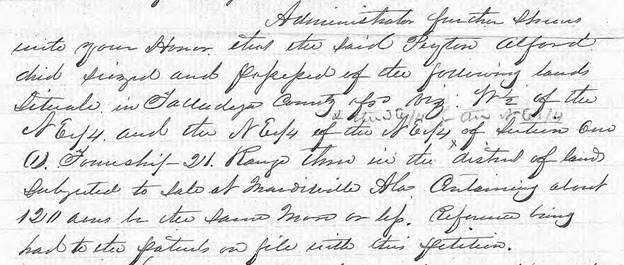 Administrator further Shews
unto your Honor that the said Peyton Alford
died seized and possessed of the following lands
Situate in Talladega County Ala viz. W½ of the
NE1/4 and the NE1/4 of the NE1/4 of Section One
(1). Township 21. Range three in the district of lands
Subjected to sale at Mardisville Ala. Containing about
120 acres be the same More or less. Reference being
had to the patents on file with this petition.